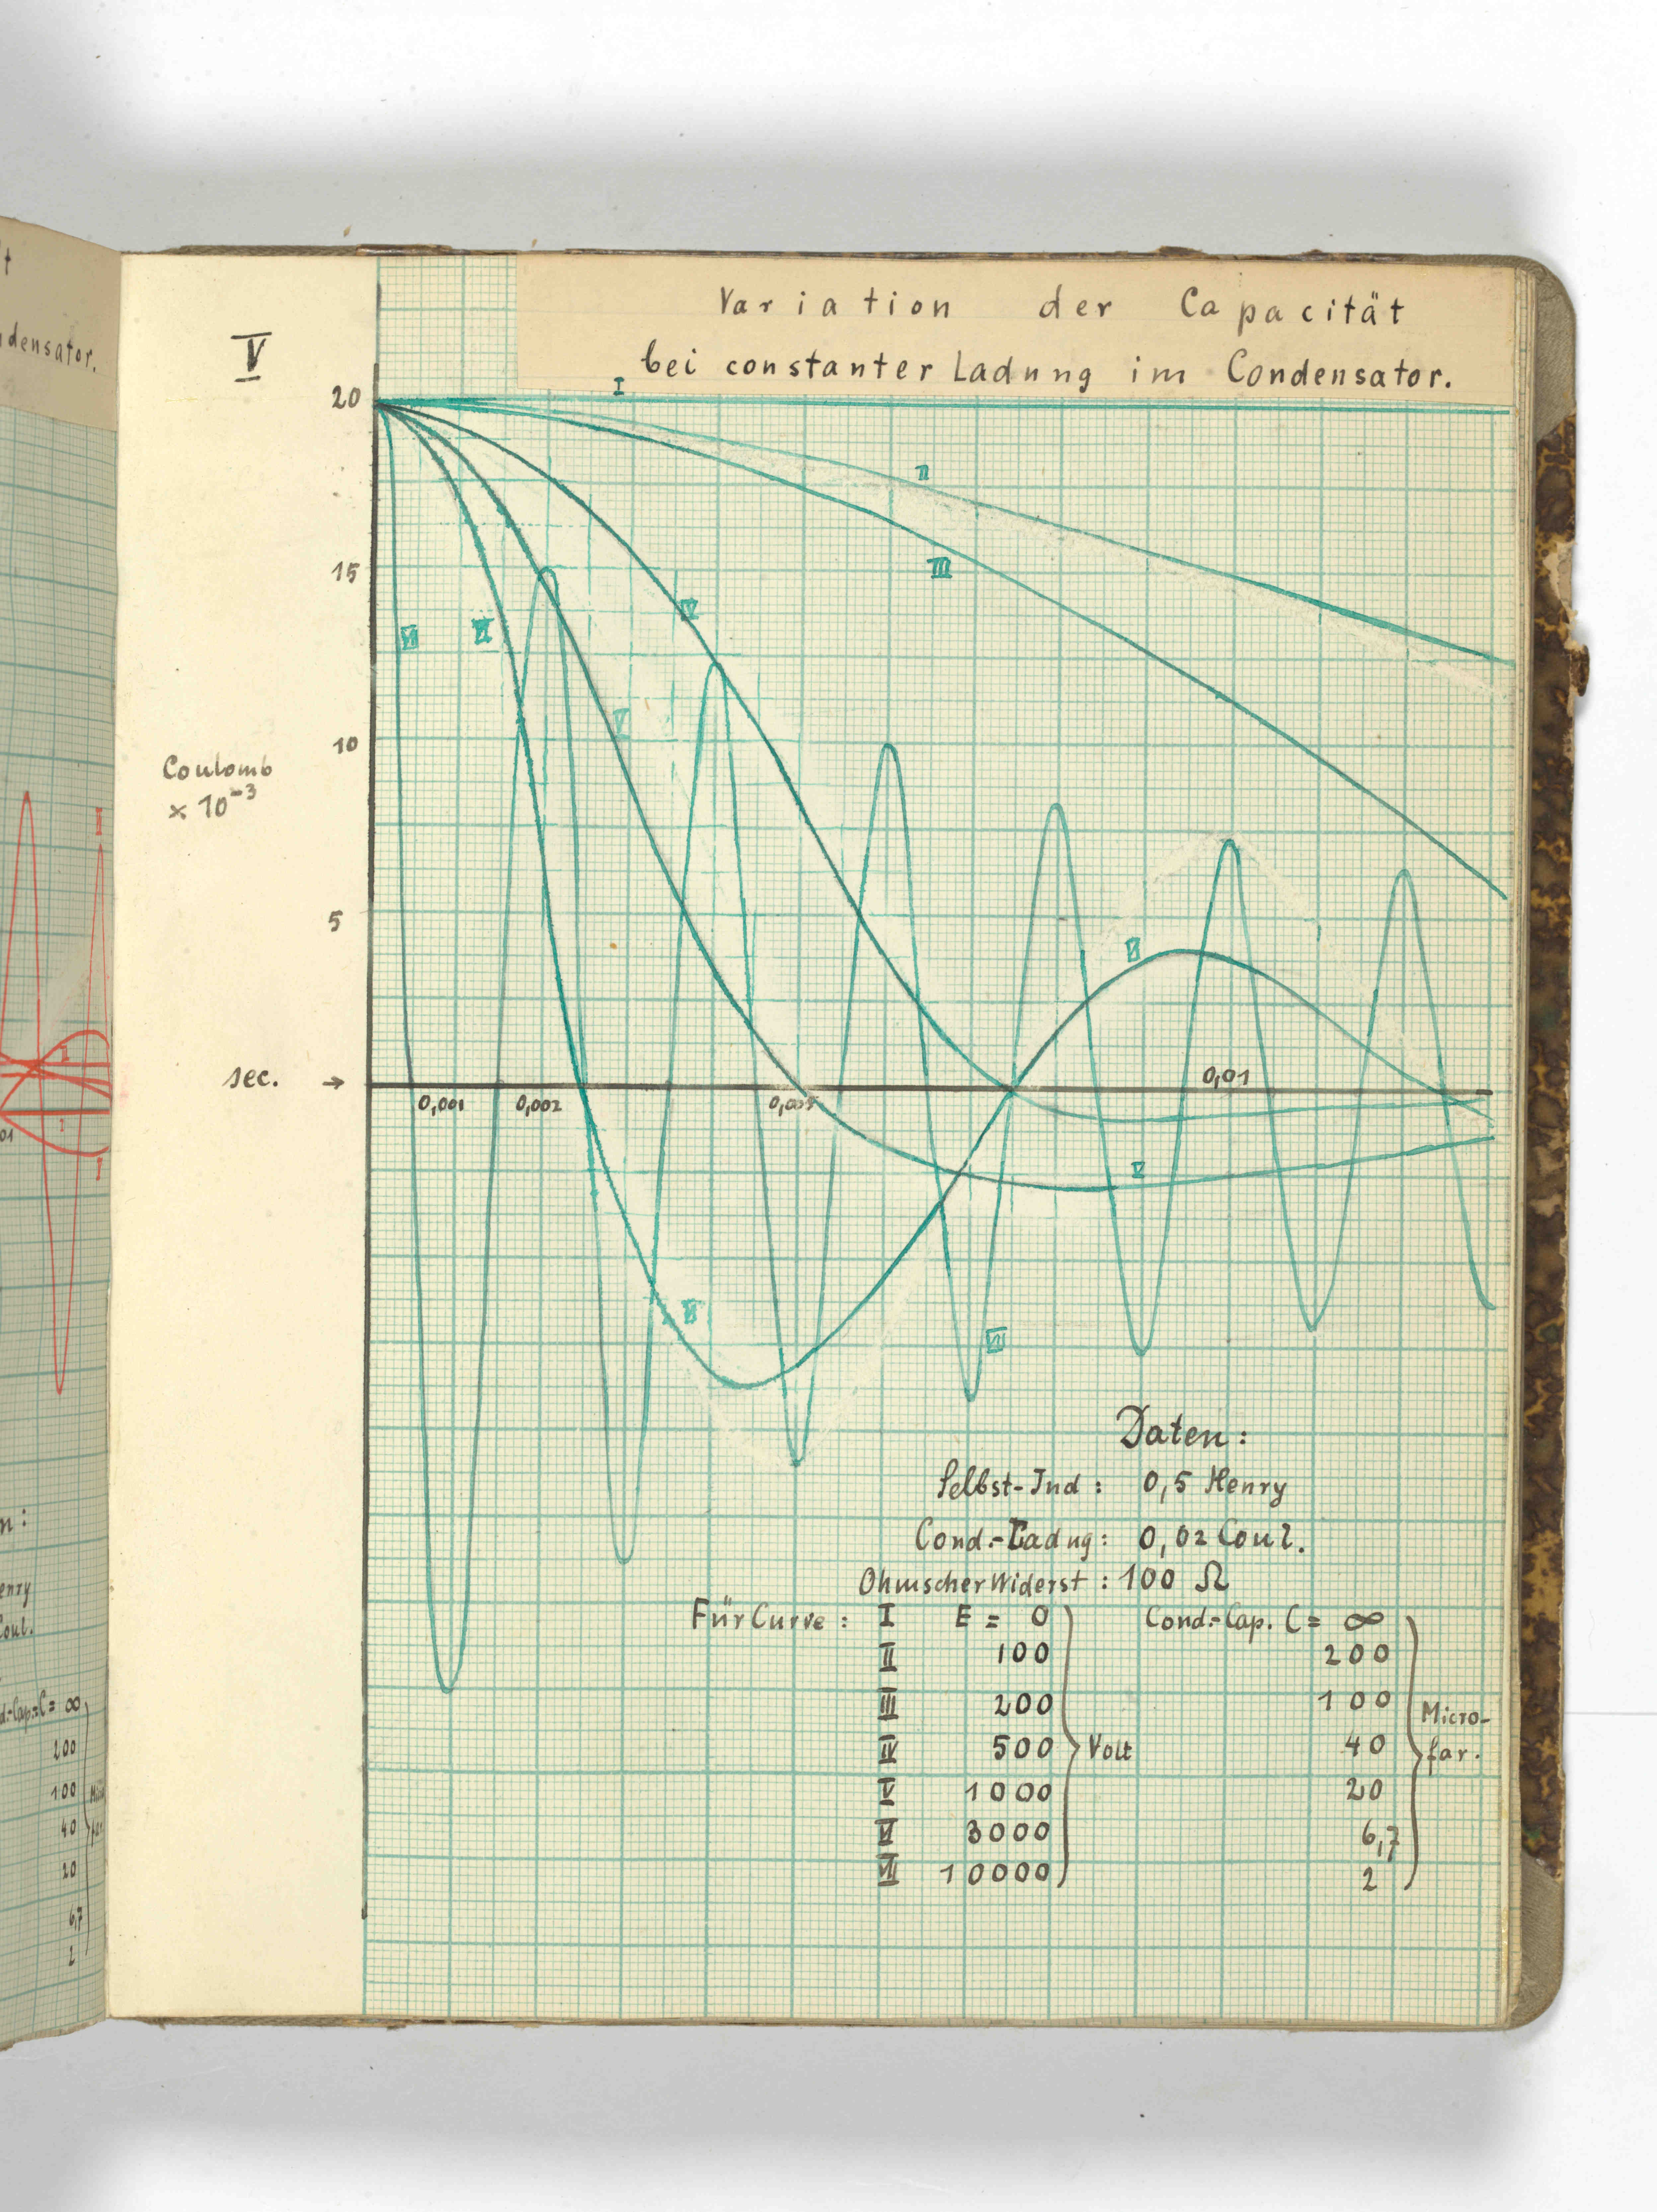 t
ndensator.
V
Variation der Capacität
bei constanter Ladung im Condensator.
20
I
II
15
III
IV
VII
VI
V
10
Coulomb
× 10⁻³
5
VI
sec. →
0,001
0,002
0,005
0,01
V
VI
VII
Daten:
Selbst-Ind: 0,5 Henry
Cond.-Ladng: 0,02 Coul.
Ohmscher Widerst: 100 Ω
Für Curve: I E = 0 Cond.-Cap. C = ∞
II 100 200
III 200 100
IV 500 40
V 1000 20
VI 3000 6,7
VII 10000 2
Volt
Micro-
far.
01
n:
enry
Coul.
d.-Cap. C = ∞
200
100
40
20
6,7
2